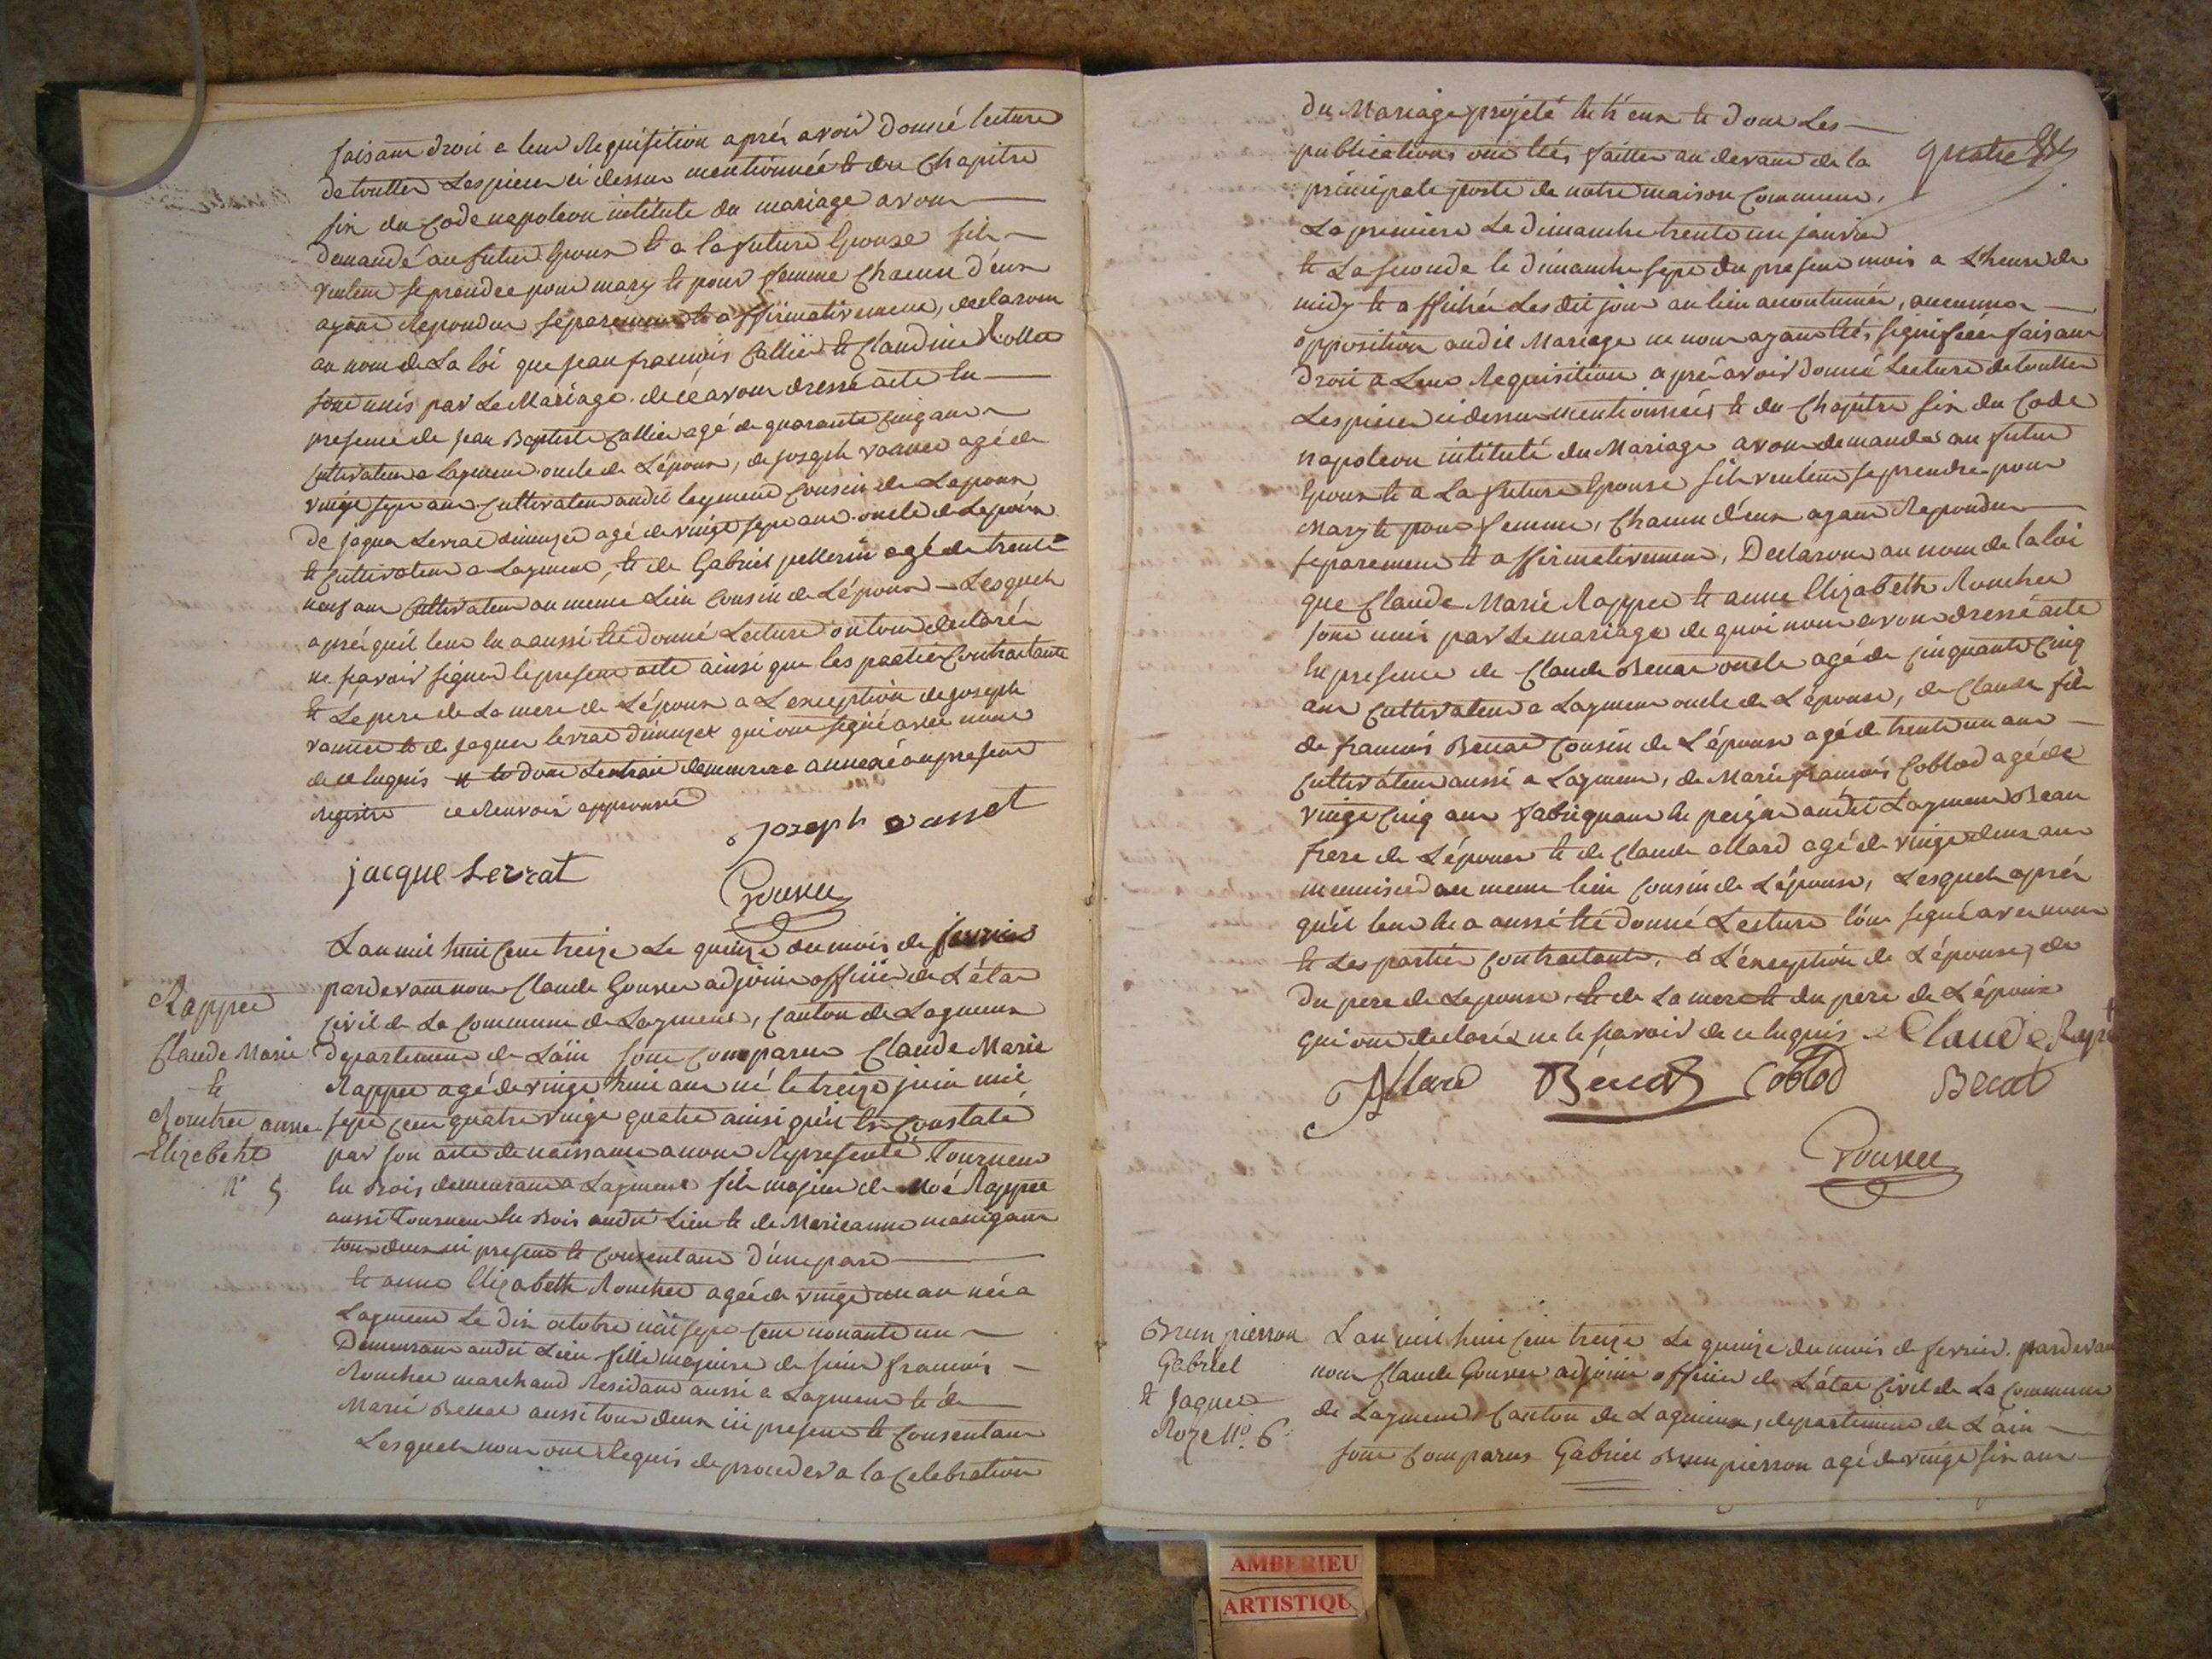 faisant droit a leur Requisition aprés avoir donné lecture
de touttes Les pieces ci dessus mentionnée et du Chapitre
six du Code napoleon intitulé du mariage avons
demandé au futur Epoux et a la future Epouse sils
veulent se prendre pour mary et pour femme Chacun d'eux
ayant Repondu separement et affirmativement, declarons
au nom de La loi que jean francois Callier et Claudine
sont unis par Le Mariage. de ce avons dressé acte En
presence de jean Baptiste Callier agé de quarante Cinq ans
Cultivateur a Laymens oncle de L'époux, de joseph vasset agé de
vingt sept ans Cultivateur audit leyment Cousin de Lepoux
De jaques Levrat agé de vingt sept ans oncle de Lepoux
et Cultivateur a Layment, et de Gabriel pellerin agé de trente
neuf ans Cultivateur au meme Lieu Cousin de L'époux Lesquels
aprés quil leur En a aussi été donné Lecture ont tous declarés
ne savoir signer le present acte ainsi que les parties Contractante
et Le pere de La mere de L'époux a L'exception de joseph
vasset et de jaques levrat qui ont signé avec nous
de ce Enquis et dont L'extrait demeurera annexé au present
Registre ce Renvoi approuvé
joseph vasset
jacque Levrat
L'an mil huit Cent treize Le quinze du mois de fevrier
pardevant nous Claude Gouvee adjoint officier de L'état
Rappee
Civil de La Commune de Layment, Canton de Lagnieux
Claude Marie
departement de L'ain sont Comparus Claude Marie
et
Rappee agé de vingt huit ans né le treize juin mil
Roucher anne
sept Cent quatre vingt quatre ainsi quil Est Constaté
Elizebeht
par son acte de naissance a nous Representé, tourneur
N° 5
En Bois demeurant a Layment fils majeur de Noé Rappee
aussi tourneur En Bois audit Lieu et de Marieanne
tous deux ici present et Consentant d'une part
et anne Elizabeth Roucher agée de vingt un an née a
Layment Le dix octobre mil sept Cent nonante un
Demeurant audit Lieu fille majeure de sieur francois
Roucher marchand Residant aussi a Layment et de
Marie Benat aussi tous deux ici present et Consentant
Lesquels nous ont Requis de proceder a la Celebration
du Mariage projeté Entr'eux et dont Les
publications ont étés faittes au devant de la
quatre
principale porte de notre maison Commune,
La premiere Le dimanche trente un janvier
et La seconde le dimanche sept du present mois a L'heure de
midy et affichés Lesdit jour au lieu acoutumée, aucunne
opposition audit Mariage ne nous ayant étés signifiées faisant
droit a Leur Requisition aprés avoir donné Lecture de touttes
Les pieces ci dessus mentionnées et du Chapitre six du Code
napoleon intitulé du Mariage avons demandé au futur
Epoux et a La future Epouse sils veulent se prendre pour
Mary et pour femme, Chacun d'eux ayant Repondu
separement et affirmativement, Declarons au nom de la loi
que Claude Marie Rappee et anne Elizabeth Roucher
sont unis par Le mariage de quoi nous avons dressé acte
En presence de Claude Benat oncle agé de Cinquante Cinq
ans Cultivateur a Layment oncle de L'épouse, de Claude fils
de francois Benat Cousin de L'épouse agé de trente un ans
Cultivateur aussi a Layment, de Marie francois Coblod agé de
vingt Cinq ans fabriquant de peigne audit Layment Beau
frere de L'épouse et de Claude allard agé de vingt deux ans
menuisier au meme lieu Cousin de L'épouse, Lesquels aprés
qu'il leur En a aussi été donné Lecture L'ont signé avec nous
et Les parties Contractante, a L'exception de L'épouse, de
Du pere de Lepouse, et de La mere et du pere de L'époux
qui ont declarés ne le savoir de ce Enquis Claude Rape
Allard Benat Coblod Benat
Brun pierron
L'an mil huit Cent treize Le quinze du mois de fevrier pardevant
Gabriel
nous Claude Gouvee adjoint officier de L'état Civil de La Commune
et Jaques
de Layment, Canton de Lagnieux, departement de L'ain
Roze N° 6
sont Comparus Gabriel Brunpierron agé de vingt six ans
AMBERIEU
ARTISTIQU